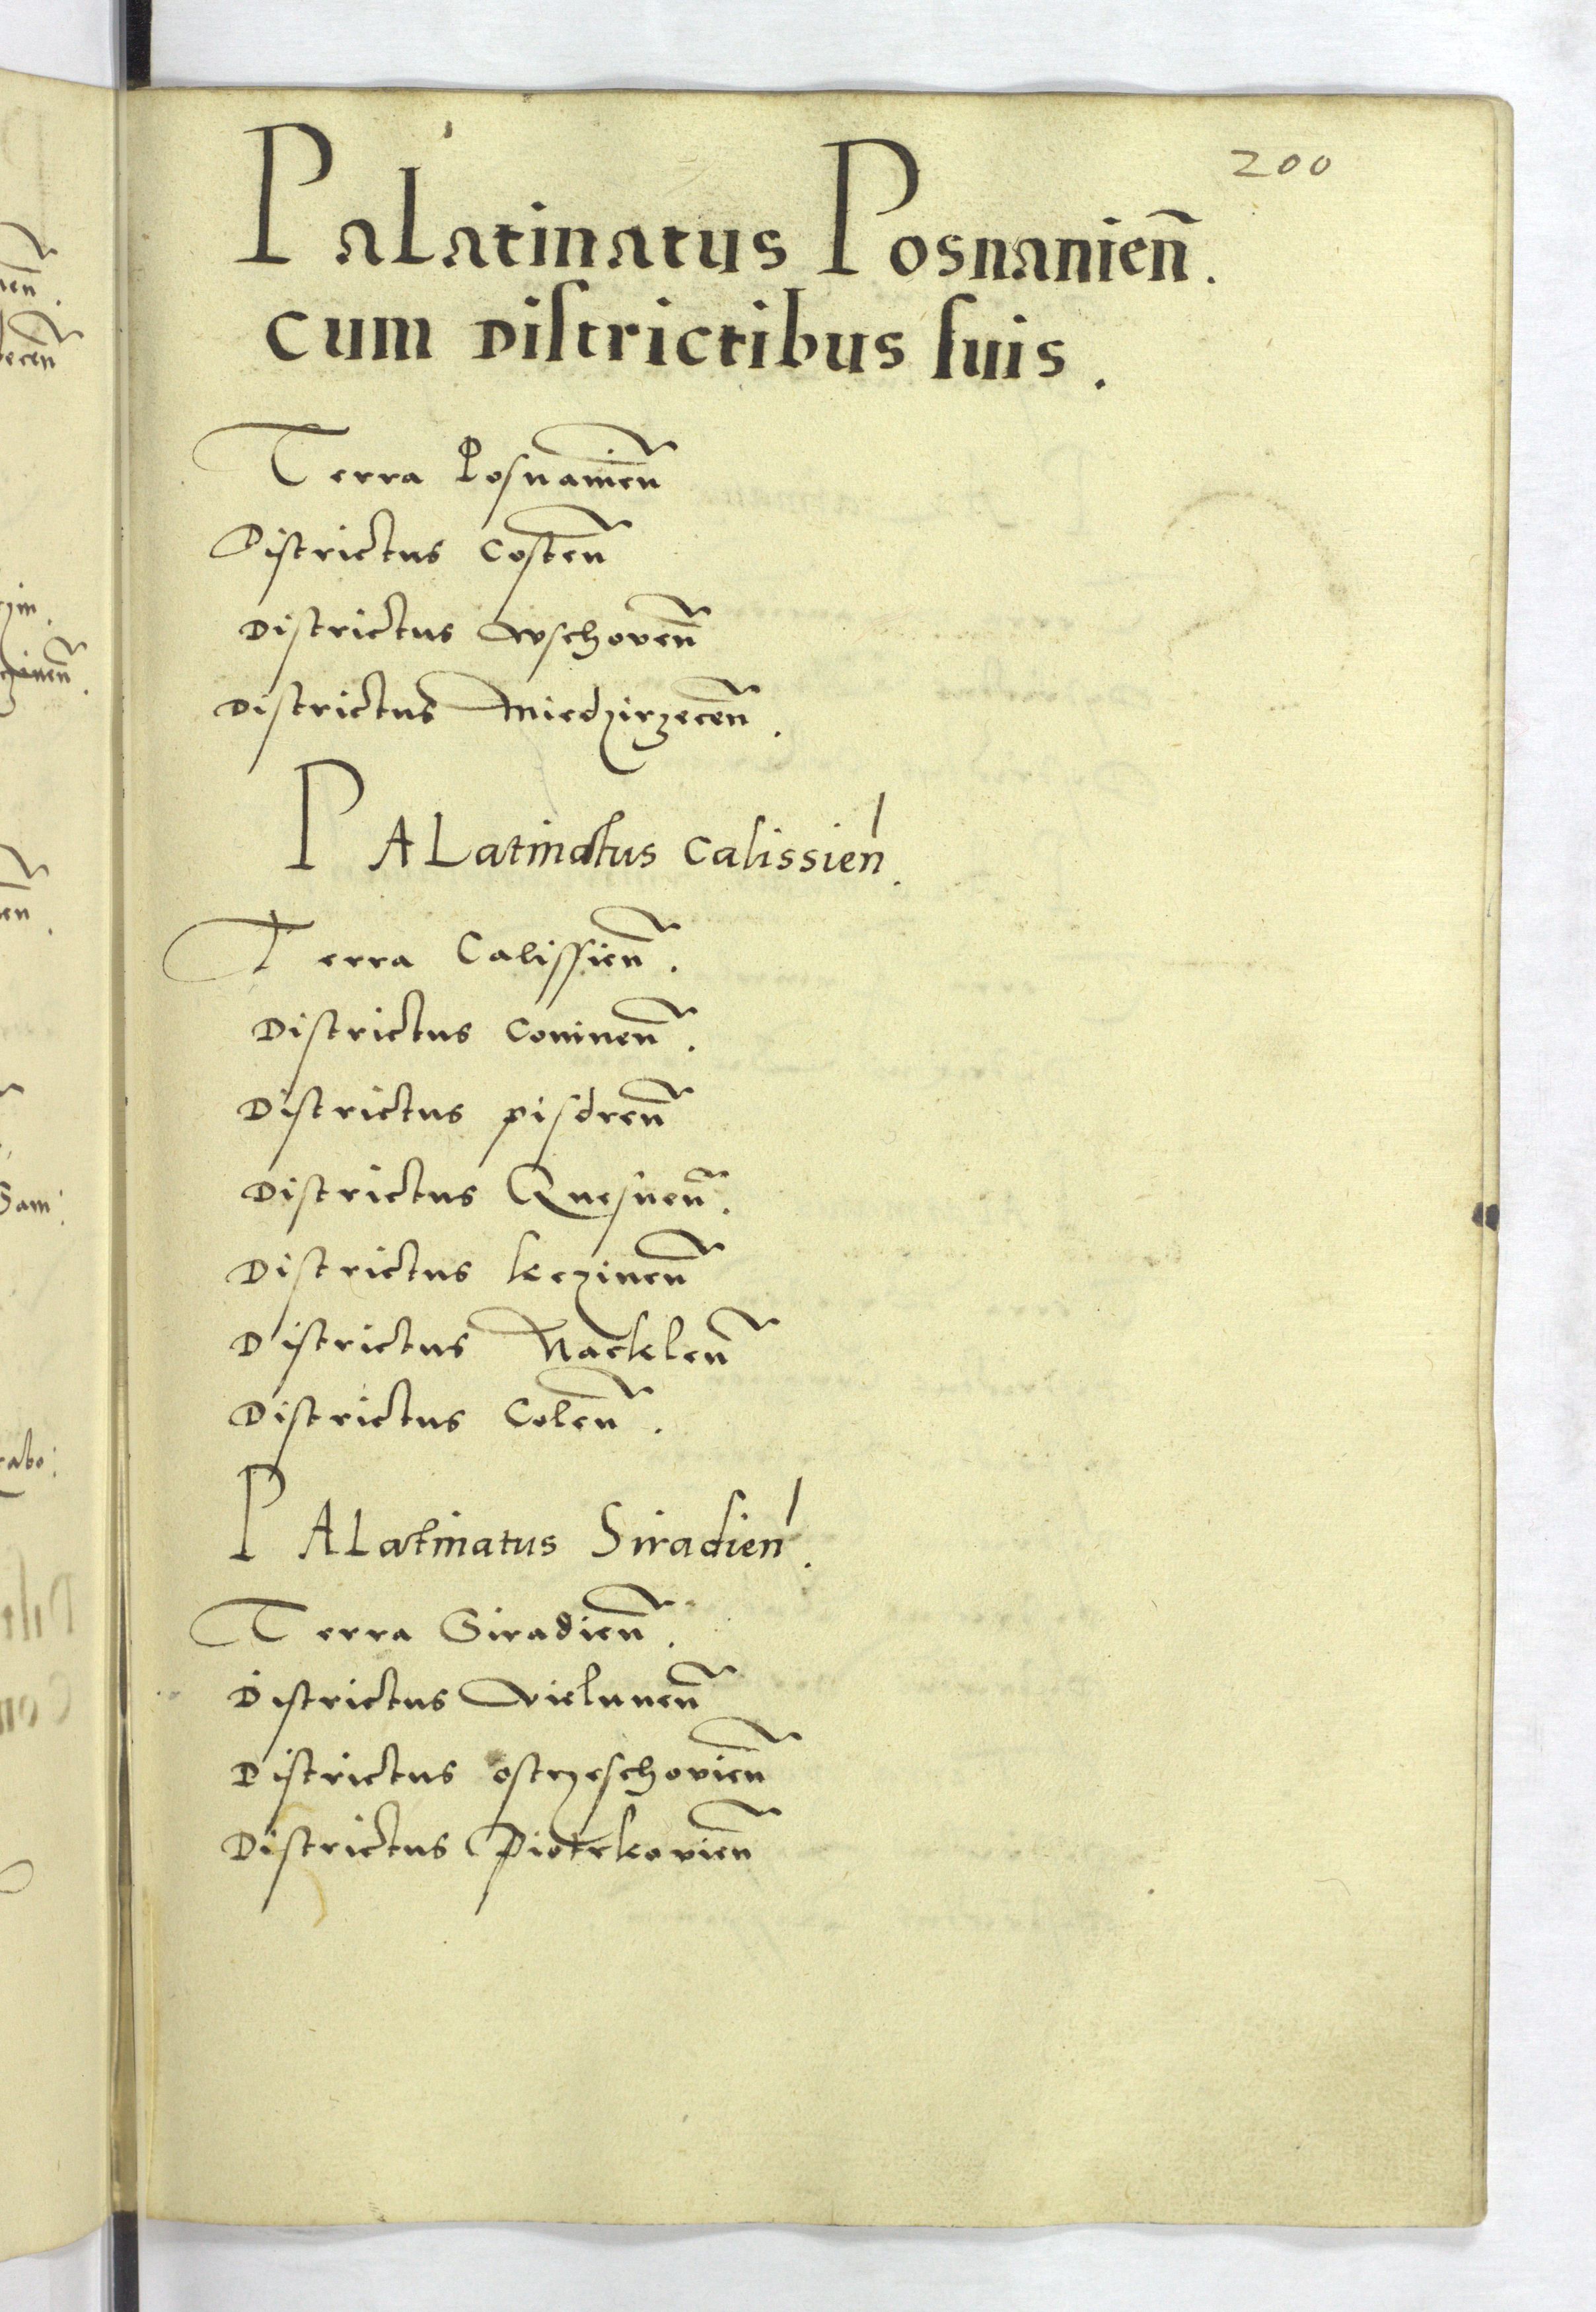 200
Palatinatus Posnanien̄.
cum Diſtrictibus ſuis.
Terra Posnanien̄
Districtus Costen̄
Districtus Wschoven̄
Districtus Miedzirzecen̄.
PALatinatus Calissien̄.
Terra Calissien̄.
Districtus Coninen̄.
Districtus pisdren̄
Districtus Gnesnen̄.
Districtus kczinen̄
Districtus Nacklen̄
Districtus Colen̄.
PALatinatus Siradien̄.
Terra Siradien̄.
Districtus Vielunen̄
Districtus ostrzeschovien̄
Districtus Piotrkovien̄